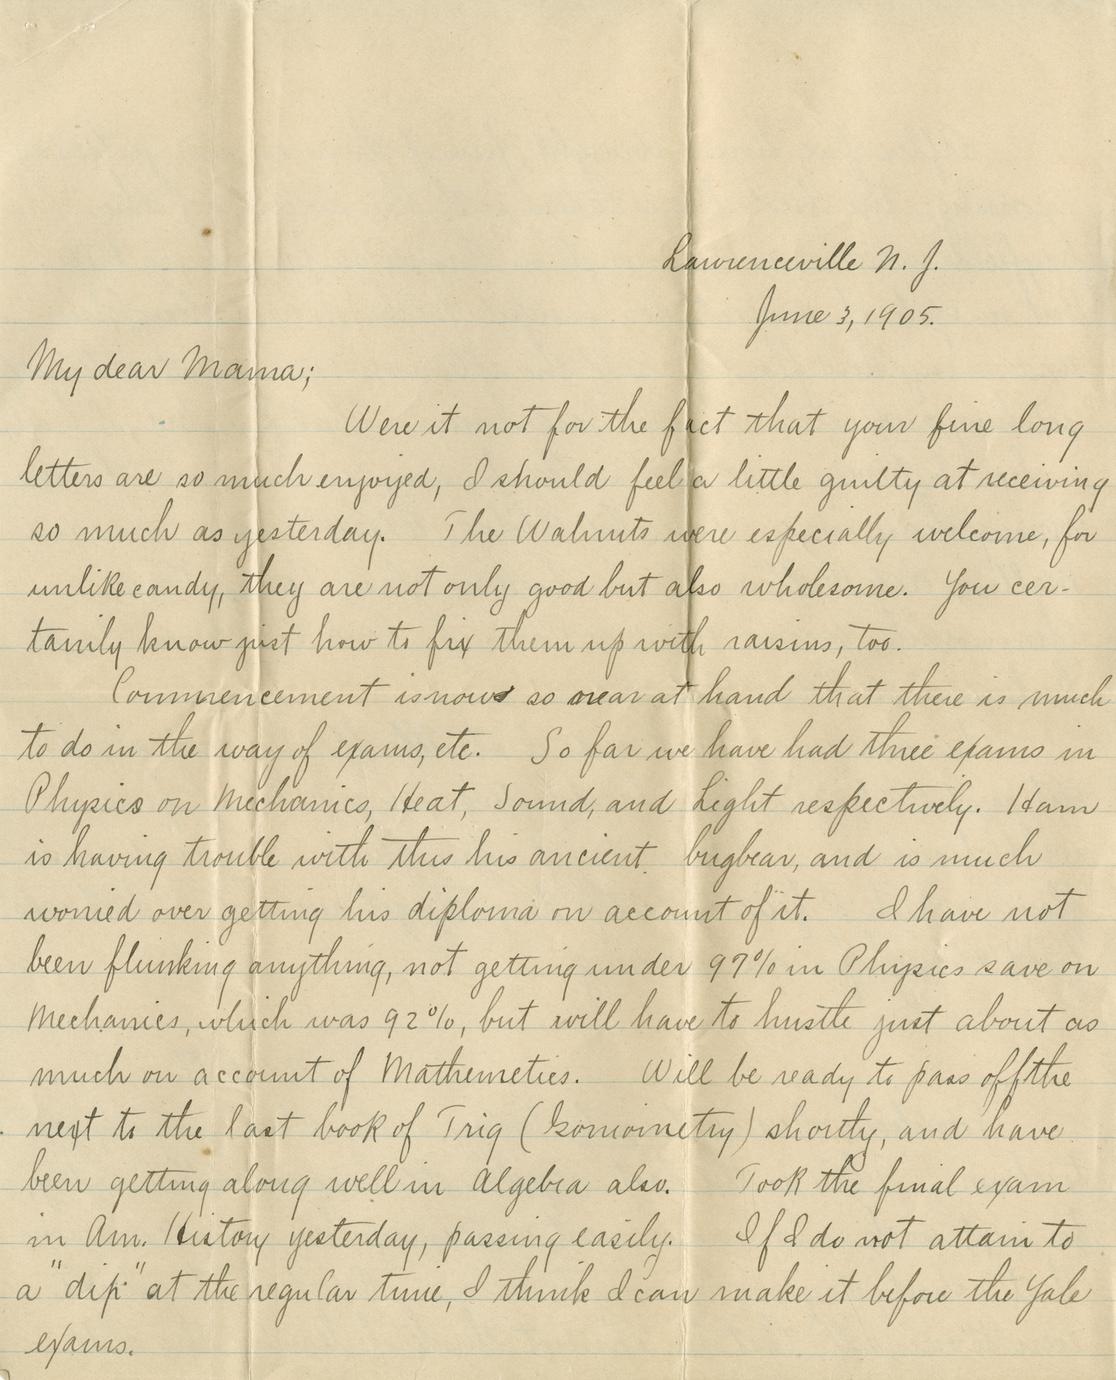 Lawrenceville N. J.
June 3, 1905.
My dear Mama;
Were it not for the fact that your fine long
letters are so much enjoyed, I should feel a little guilty at receiving
so much as yesterday. The Walnuts were especially welcome, for
unlike candy, they are not only good but also wholesome. You cer-
tainly know just how to fix them up with raisins, too.
Commencement is now so near at hand that there is much
to do in the way of exams, etc. So far we have had three exams in
Physics on Mechanics, Heat, Sound, and Light respectively. Ham
is having trouble with this his ancient bugbear, and is much
worried over getting his diploma on account of it. I have not
been flunking anything, not getting under 97% in Physics save on
Mechanics, which was 92%, but will have to hustle just about as
much on account of Mathemetics. Will be ready to pass off the
next to the last book of Trig (Goniometry) shortly, and have
been getting along well in Algebra also. Took the final exam
in Am. History yesterday, passing easily. If I do not attain to
a "dip" at the regular time, I think I can make it before the Yale
exams.